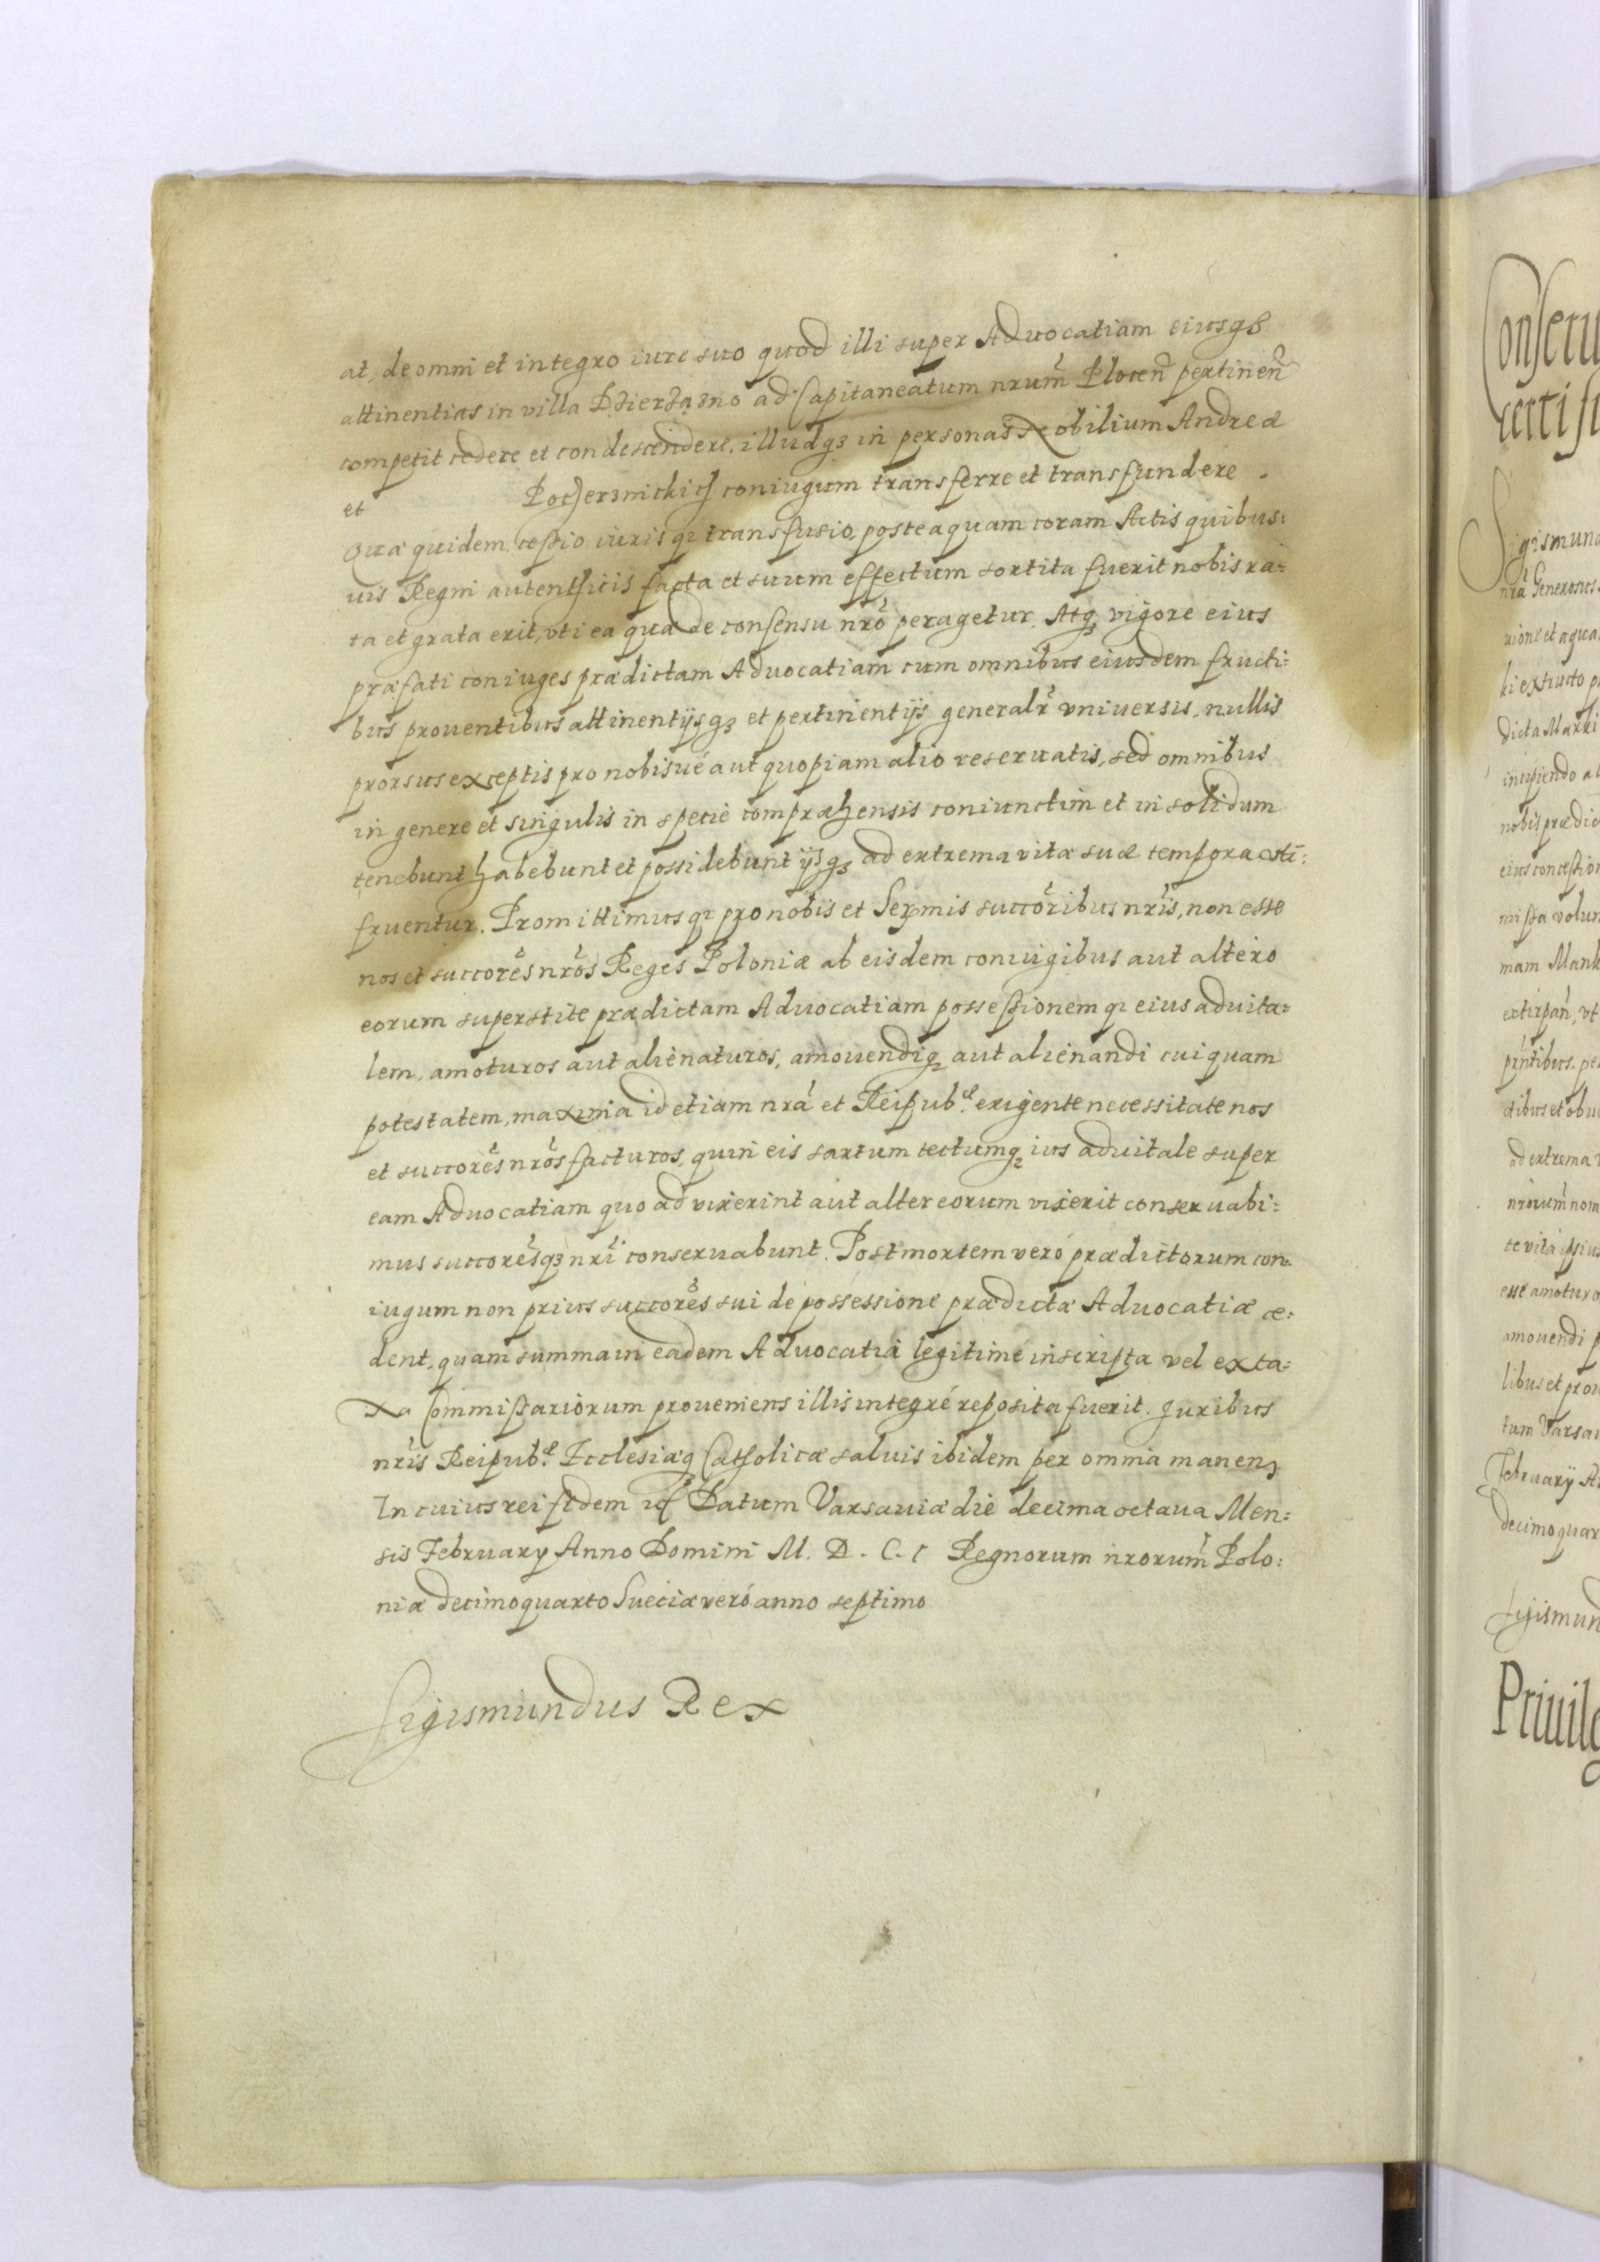 at, de omni et integro iure suo quod illi super Advocatiam eiusq3
attinentias in villa Dzierzązno ad Capitaneatum nrum Plocen pertinen
competit cedere et condescendere, illudq3 in personas Nobilium Andreæ
et Pocherznickich coniugum transferre et transfundere.
Quæ quidem cessio iuris q3 transfusio, posteaquam coram Actis quibus:
uis Regni autenthicis facta et suum effectum sortita fuerit nobis ra:
ta et grata erit, vti ea quæ de consensu nro peragetur. Atq3 vigore eius
præfati coniuges prædictam Advocatiam cum omnibus eiusdem fructi:
bus prouentibus attinentijsq3 et pertinentijs generalr vniuersis, nullis
prorsus exceptis pro nobisué aut quopiam alio reseruatis, sed omnibus
in genere et singulis in specie compræhensis coniunctim et in solidum
tenebunt habebunt et possidebunt ijsq3 ad extrema vitæ suæ tempora
fruentur. Promittimusq3 pro nobis et Sermis succoribus nris, non esse
nos et succores nros Reges Poloniæ ab eisdem coniugibus aut altero
eorum superstite prædictam Advocatiam possessionemq3 eius aduita:
lem, amoturos aut alienaturos, amouendiq3 aut alienandi cuiquam
potestatem, maxima id etiam nra et Reipub. exigente necessitate nos
et succores nros facturos, quin eis sartum tectumq3 ius aduitale super
eam Advocatiam quo ad vixerint aut alter eorum vixerit conseruabi:
mus succoresq3 nri conseruabunt. Post mortem veró prædictorum con:
iugum non prius succores sui de possessione prædictæ Advocatiæ ce:
dent, quam summa in eadem Advocatia legitimé inscripta vel ex ta:
xa Commissariorum proueniens illis integré reposita fuerit. Juribus
nris Reipub. Ecclesiæq3 Catholicæ saluis ibidem per omnia manen3
In cuius rei fidem Datum Varsauiæ die decima octaua Men:
sis February Anno Domini M. D. C. I Regnorum nrorum Polo:
niæ decimoquarto Sueciæ veró anno septimo
Sigismundus Rex
Consensu
certi
Sigismund
nra Generosus
uione et aqua
ki extructo
dicta
incipiendo
nobis prædict
eius concession
missa
mam
extirpan, vt
pntibus
tibus et
ad extrema
nrorum nom
te vita
esse amoturo
amouendi
libus et
tum Varsau
February
decimoquar
Sigismund
Priuile